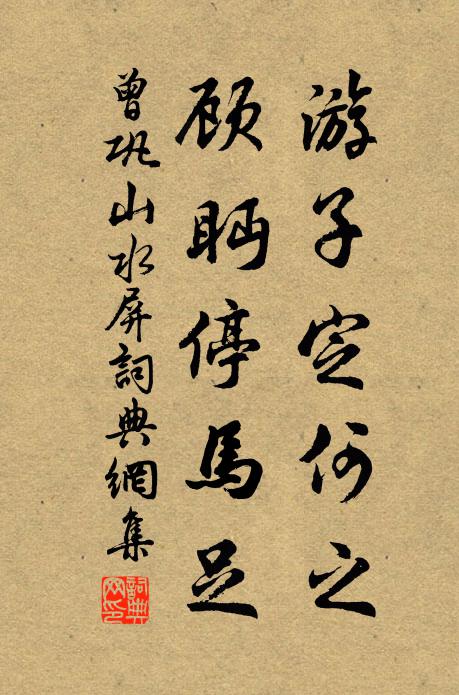 游子定何之
顾眄停馬足
曾巩山水屏詞典網集
詞典网印